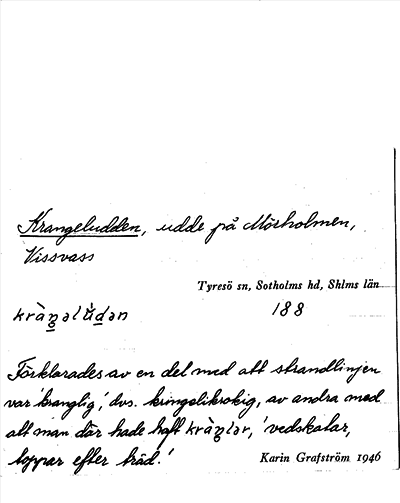 Krangeludden, udde på Mörholmen,
Vissvass
Tyresö sn, Sotholms hd, Shlms län
188
Förklarades av en del med att strandlinjen
var 'kranglig', dvs. kringelikrokig, av andra med
att man där hade haft kràŋlar, 'vedskatar,
toppar efter träd.'
Karin Grafström 1946